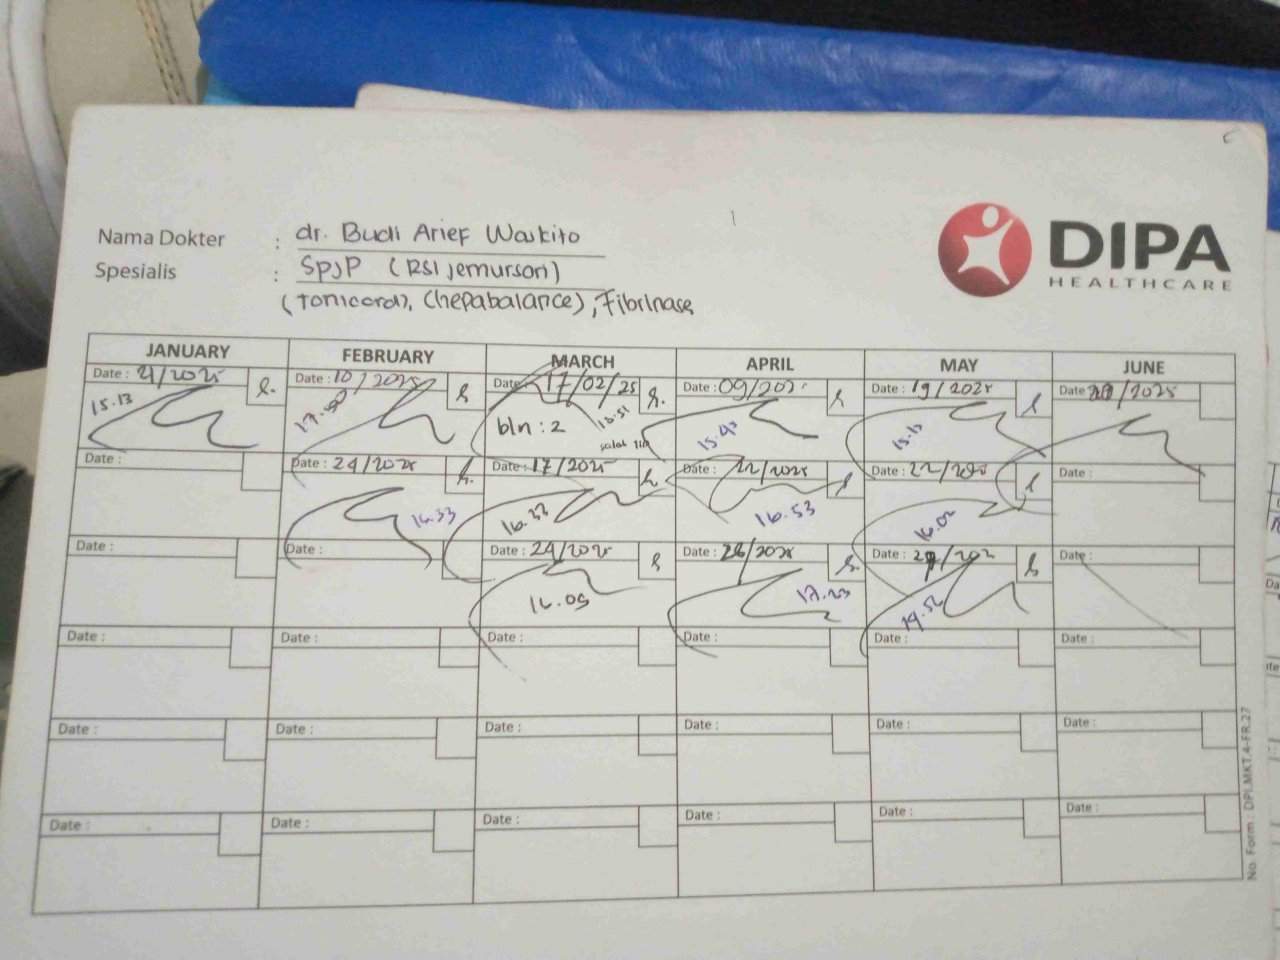 Nama Dokter : dr. Budi Arief Waskito
Spesialis : SpJP (RSI Jemurson)
(Tonicard), (hepabalance), Fibrinase
DIPA
HEALTHCARE
JANUARY FEBRUARY MARCH APRIL MAY JUNE
Date : 21/2025 Date : 10/2025 Date : 17/02/25 Date : 09/202 Date : 19/2025 Date /2025
15.13 17.50 16.51 15.42 15.17
bln : 2
salah TTD
Date : Date : 24/2025 Date : 17/2025 Date : 22/2025 Date : 22/2025 Date :
16.33 16.33 16.53 16.02
Date : Date : Date : 24/2025 Date : 28/2025 Date : /202 Date :
16.09 17.23 19.52
Date : Date : Date : Date : Date : Date :
Date : Date : Date : Date : Date : Date :
Date : Date : Date : Date : Date : Date :
No. Form : DPI.MKT.4-FR.27